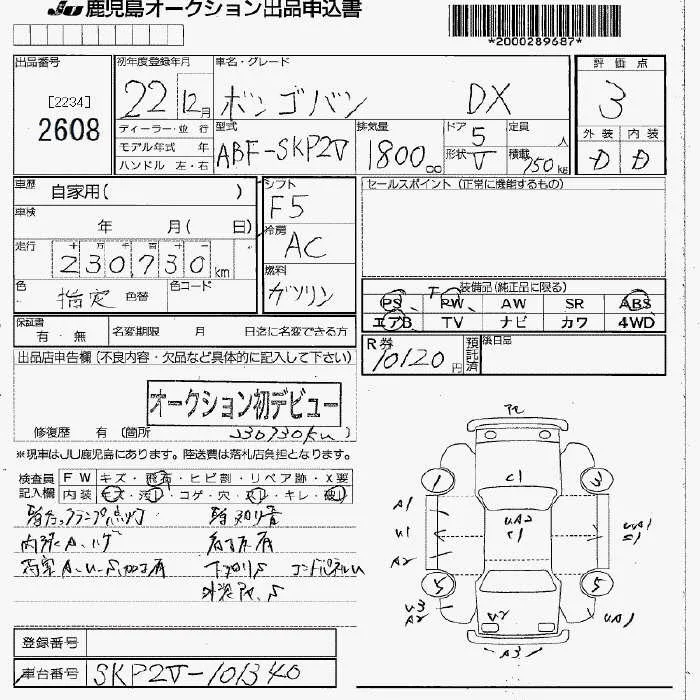 JU 鹿児島オークション出品申込書
*2000289687*
出品番号
[2234]
2608
初年度登録年月
22 12月
車名・グレード
ボンゴバン DX
評価点
3
外装 内装
D D
ディーラー・並行
モデル年式 年
ハンドル 左・右
型式
ABF-SKP2V
排気量
1800cc
ドア 5
形状 V
定員 人
積載 750kg
車歴
自家用( )
車検
年 月( 日)
走行
十 万 千 百 十
230,730km
色
指定 色替
色コード
シフト
F5
冷房
AC
燃料
ガソリン
セールスポイント(正常に機能するもの)
装備品(純正品に限る)
PS PW AW SR ABS
エアB TV ナビ カワ 4WD
保証書
有・無
名変期限 月 日迄に名変できる方
R券
10120円
預託済
後日品
出品店申告欄(不良内容・欠品など具体的に記入して下さい)
オークション初デビュー
修復歴 有(箇所 230730km)
※現車はJU鹿児島にあります。陸送費は落札店負担となります。
検査員
記入欄
FW キズ・飛石・ヒビ割・リペア跡・X要
内装 キズ・汚れ・コゲ・穴・スレ・キレ・破れ
R
1
3
C1
A1
U1
A2
UA2
C1
UA1
C1
5
5
U3
A2
U2
UA1
A3
登録番号
車台番号 SKP2V-101340